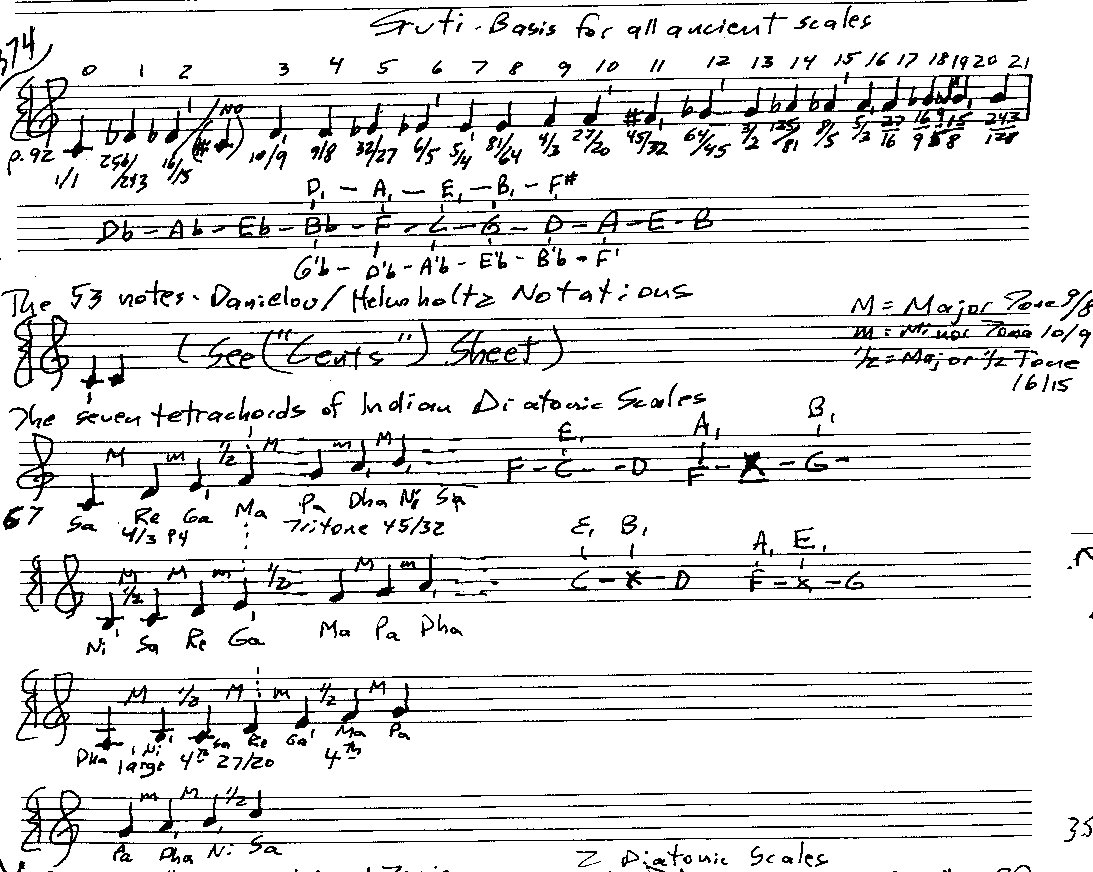 374
Sruti - Basis for all ancient scales
0 1 2 3 4 5 6 7 8 9 10 11 12 13 14 15 16 17 18 19 20 21
NO
p.92 1/1 256/243 16/15 10/9 9/8 32/27 6/5 5/4 81/64 4/3 27/20 45/32 64/45 3/2 128/81 8/5 5/3 27/16 16/9 9/5 15/8 243/128
D, - A, - E, - B, - F#
Db - Ab - Eb - Bb - F - C - G - D - A - E - B
G'b - D'b - A'b - E'b - B'b - F'
The 53 notes - Danielou/Helmholtz Notations
M = Major Tone 9/8
(See ("Cents") Sheet)
m = Minor Tone 10/9
1/2 = Major 1/2 Tone
16/15
The seven tetrachords of Indian Diatonic Scales
M m 1/2 M m M
E, A, B,
F - C - - D F - X - G -
67 Sa Re Ga Ma Pa Dha Ni Sa
4/3 P4 Tritone 45/32
M M m 1/2 M m
1/2
E, B, A, E,
C - X - D F - X, - G
Ni Sa Re Ga Ma Pa Dha
M 1/2 M m 1/2 M
Dha Ni Sa Re Ga Ma Pa
large 4th 27/20 4th
m M 1/2
35
Pa Dha Ni Sa
2 Diatonic Scales